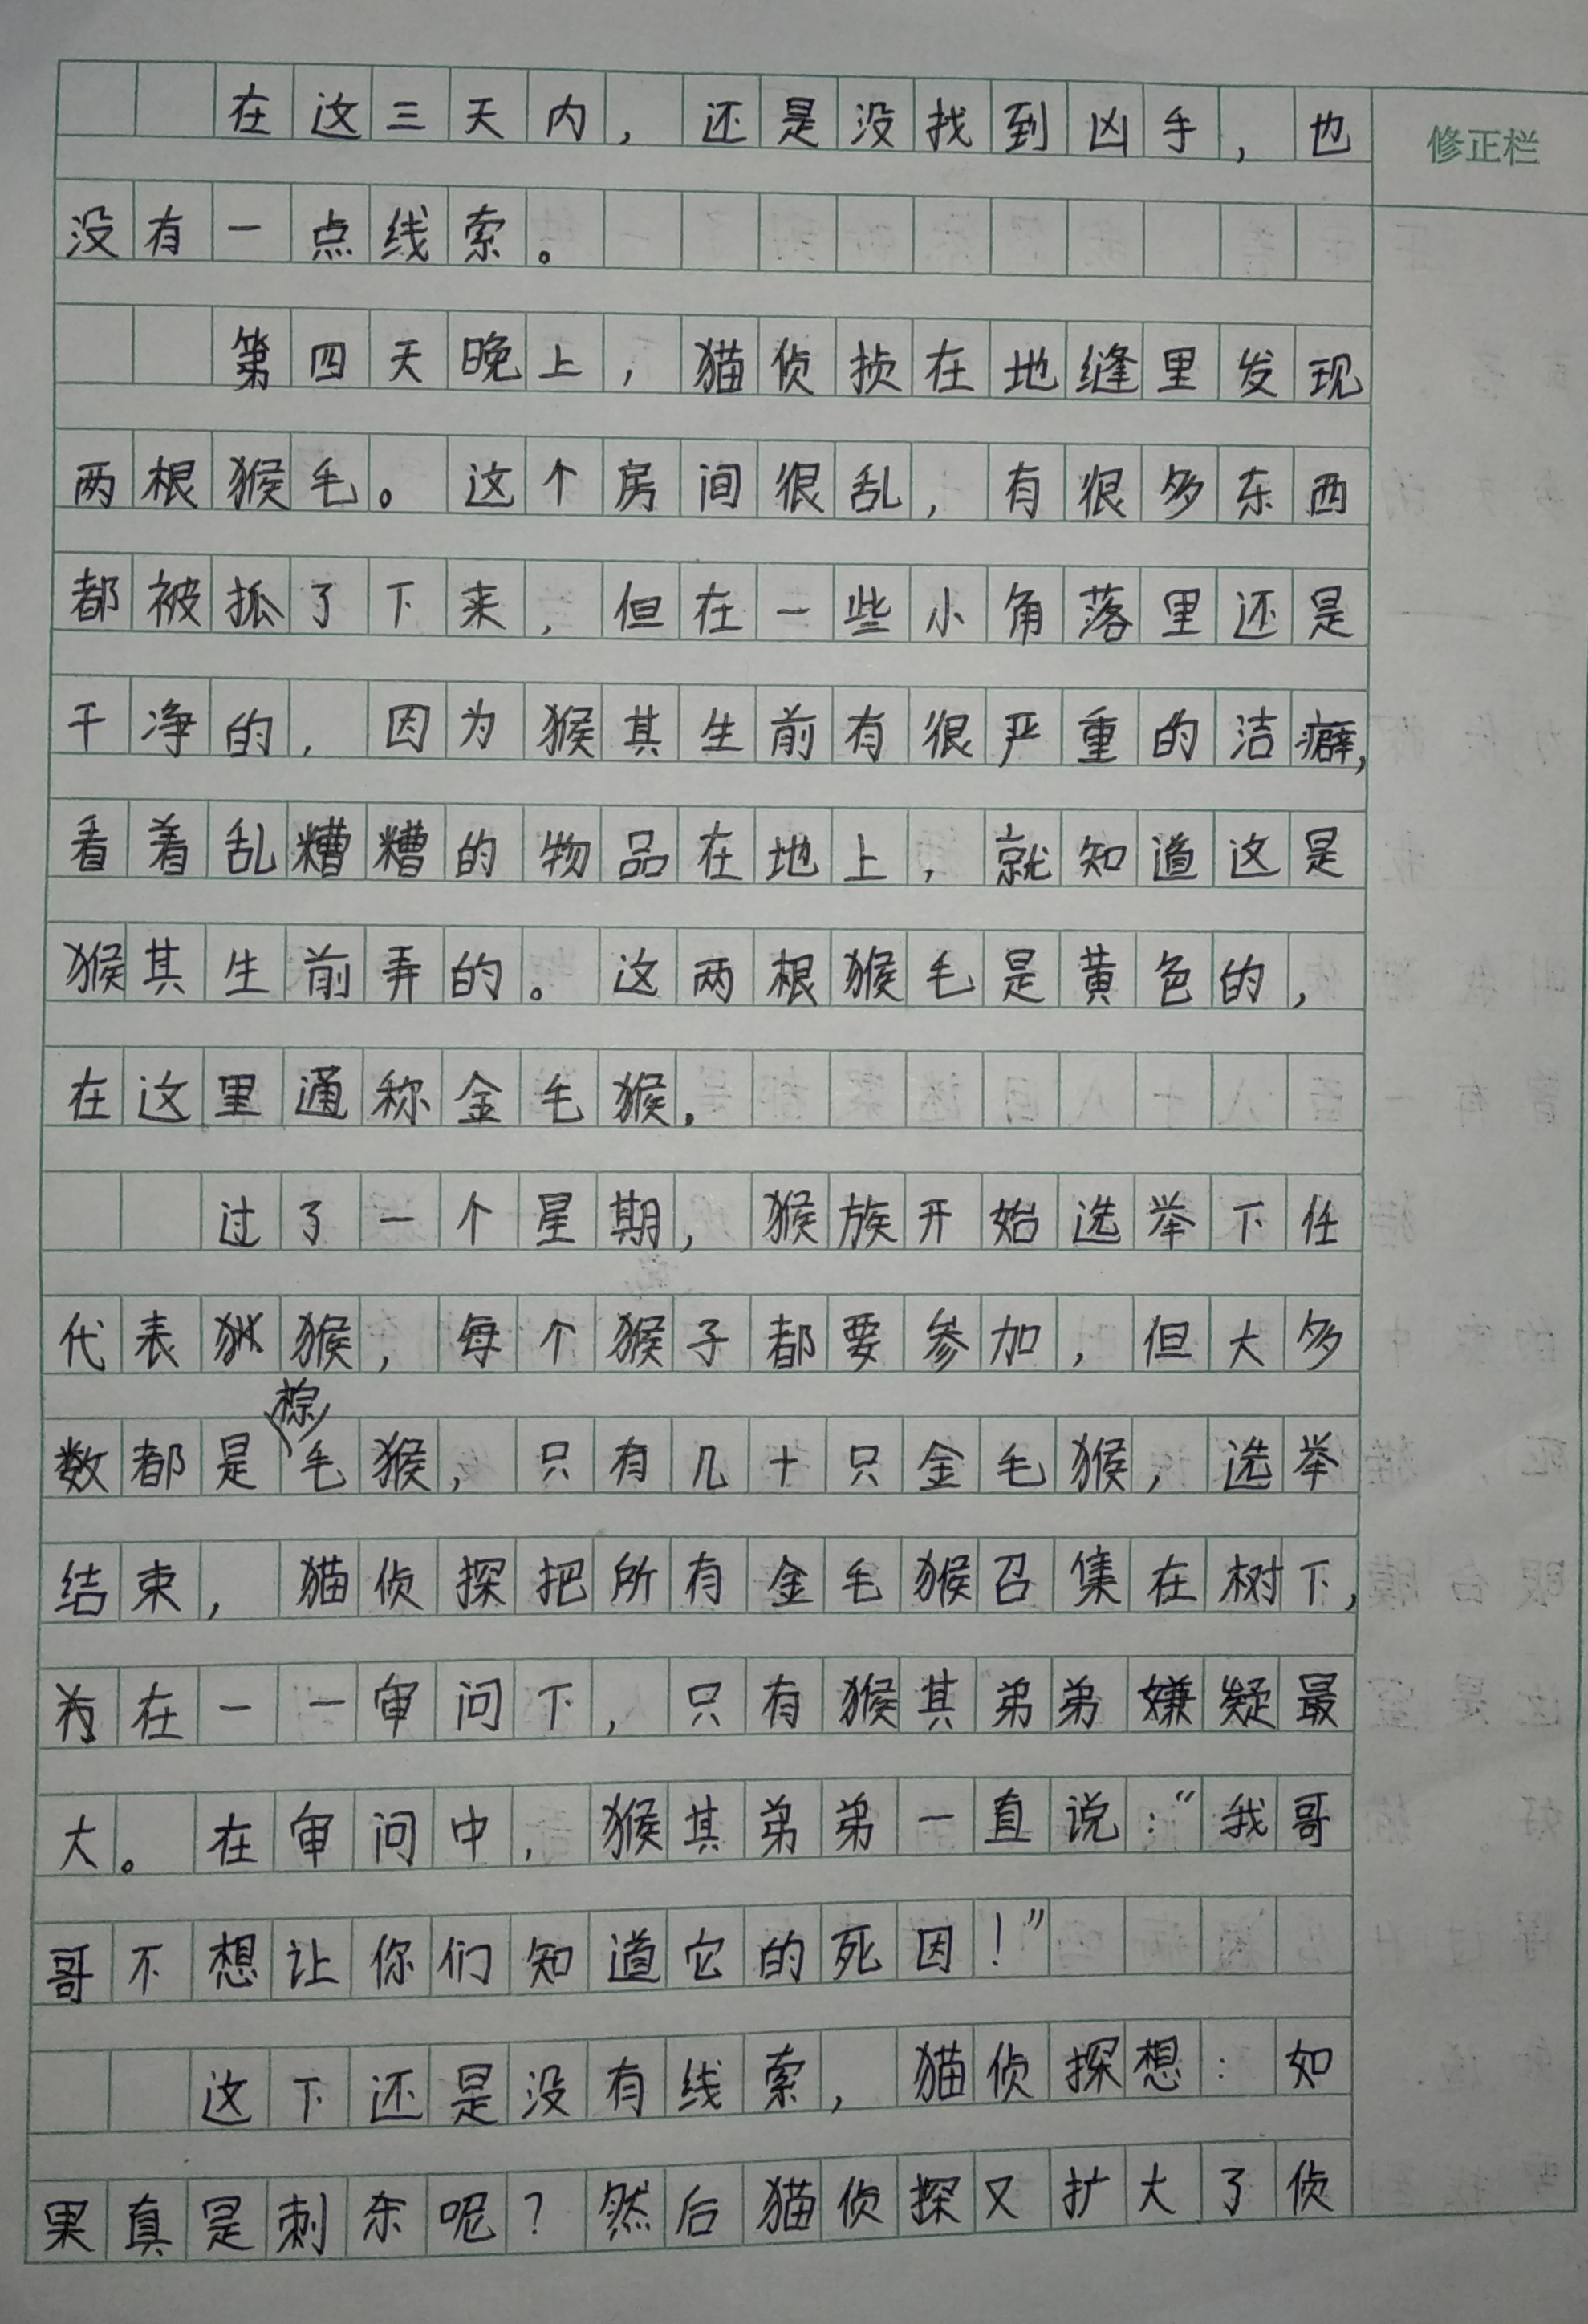 在这三天内,还是没找到凶手,也
修正栏
没有一点线索。
第四天晚上,猫侦探在地缝里发现
两根猴毛。这个房间很乱,有很多东西
都被抓了下来,但在一些小角落里还是
干净的,因为猴其生前有很严重的洁癖,
看着乱糟糟的物品在地上,就知道这是
猴其生前弄的。这两根猴毛是黄色的,
在这里通称金毛猴.
过了一个星期,猴族开始选举下任
代表猴,每个猴子都要参加,但大多
数都是棕毛猴,只有几十只金毛猴,选举
结束,猫侦探把所有金毛猴召集在树下,
在一一审问下,只有猴其弟弟嫌疑最
大。在审问中,猴其弟弟一直说:“我哥
哥不想让你们知道它的死因!”
这下还是没有线索,猫侦探想:如
果真是刺杀呢?然后猫侦探又扩大了侦